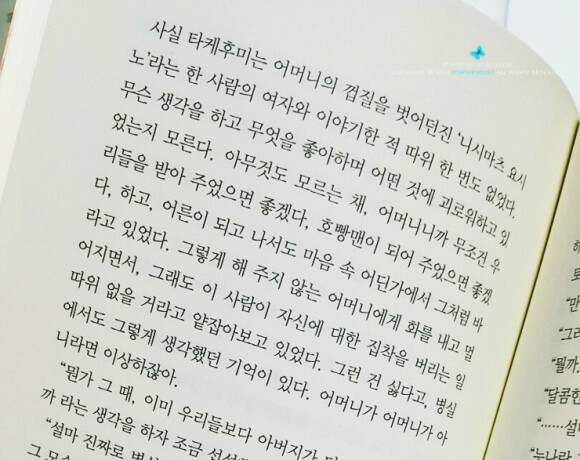 사실 타케후미는 어머니의 껍질을 벗어던진 '니시마츠 요시
노'라는 한 사람의 여자와 이야기한 적 따위 한 번도 없었다.
무슨 생각을 하고 무엇을 좋아하며 어떤 것에 괴로워하고 있
었는지 모른다. 아무것도 모르는 채, 어머니니까 무조건 우
리들을 받아 주었으면 좋겠다, 호빵맨이 되어 주었으면 좋겠
다, 하고, 어른이 되고 나서도 마음 속 어딘가에서 그처럼 바
라고 있었다. 그렇게 해 주지 않는 어머니에게 화를 내고 멀
어지면서, 그래도 이 사람이 자신에 대한 집착을 버리는 일
따위 없을 거라고 얕잡아보고 있었다. 그런 건 싫다고, 병실
에서도 그렇게 생각했던 기억이 있다. 어머니가 어머니가 아
니라면 이상하잖아.
"뭔가 그 때, 이미 우리들보다 아버지가
까 라는 생각을 하자 조금
"설마 진짜로
그 모습
"만
"그러
"뭘까.
"달콤한
"……설마
"누나랑